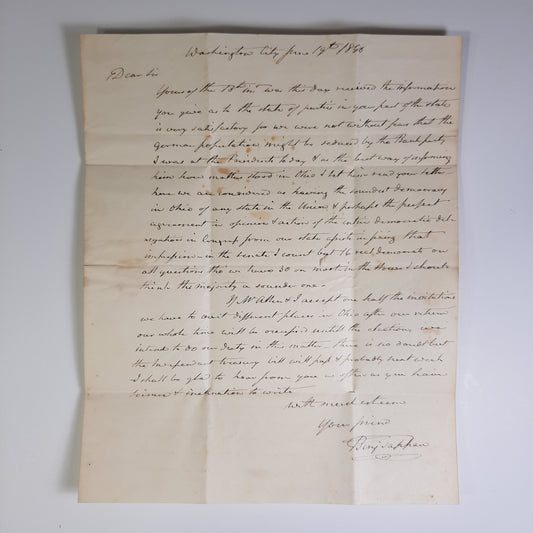 Washington City June 19th 1840
Dear Sir
Yours of the 13th inst was this day received the information
you give as to the state of parties in your part of the state
is very satisfactory for we were not without fears that the
german population might be seduced by the Bank party
I was at the Presidents to day & as the best way of informing
him how matters stood in Ohio I let him read your letter
here we are considered as having the soundest democracy
in Ohio of any state in the Union & perhaps the perfect
agreement in opinion & action of the entire democratic del-
egation in Congress from our state assists in fixing that
impression in the senate I count but 16 real democrats on
all questions tho' we have 30 on most in the House I should
think the majority a sounder one
If Mr Allen & I accept one half the invitations
we have to visit different places in Ohio after our return
our whole time will be occupied untill the elections, we
intend to do our duty in this matter. there is no doubt but
the Independent treasury bill will pass & probably next week
I shall be glad to hear from you as often as you have
leisure & inclination to write
with much esteem
Your friend
Benj Tappan